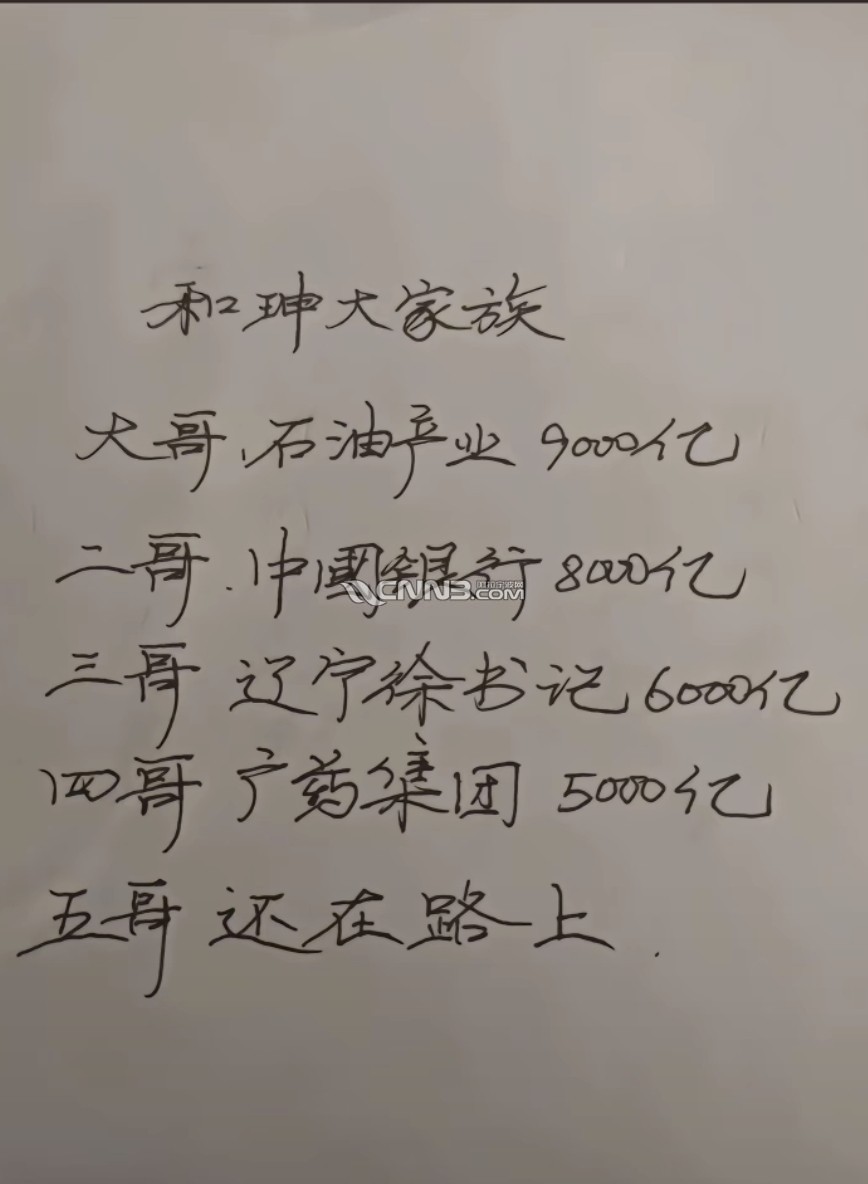 和珅大家族
大哥、石油产业 9000亿
二哥、中國銀行 8000亿
三哥 辽宁徐书记 6000亿
四哥 广药集团 5000亿
五哥 还在路上.
CNN3.COM